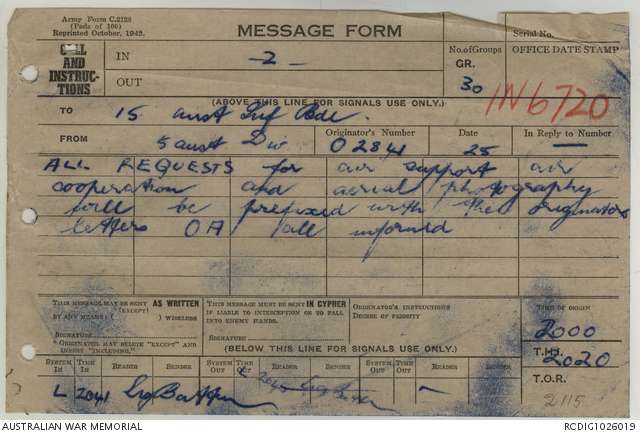 Army Form C.2128
(Pads of 100)
Reprinted October, 1942.
MESSAGE FORM
Serial No.
CALL AND INSTRUC- TIONS
IN
- 2 -
OUT
No. of Groups
GR.
30
OFFICE DATE STAMP
IN6720
(ABOVE THIS LINE FOR SIGNALS USE ONLY.)
TO 15 aust Inf Bde.
FROM 5 aust Div
Originator's Number
O2841
Date
25
In Reply to Number
—
ALL REQUESTS for air support air
cooperation and aerial photography
will be prefixed with the originators
letters OA all informed
THIS MESSAGE MAY BE SENT AS WRITTEN
(EXCEPT)
BY ANY MEANS WIRELESS
SIGNATURE
* ORIGINATOR MAY DELETE "EXCEPT" AND
INSERT "INCLUDING."
THIS MESSAGE MUST BE SENT IN CYPHER
IF LIABLE TO INTERCEPTION OR TO FALL
INTO ENEMY HANDS.
SIGNATURE
ORIGINATOR'S INSTRUCTIONS
DEGREE OF PRIORITY
TIME OF ORIGIN
2000
(BELOW THIS LINE FOR SIGNALS USE ONLY.)
T.H.I.
2020
SYSTEM IN
TIME IN
READER
SENDER
SYSTEM OUT
TIME OUT
READER
SENDER
SYSTEM OUT
TIME OUT
READER
SENDER
T.O.R.
L 2041
2115
AUSTRALIAN WAR MEMORIAL
RCDIG1026019